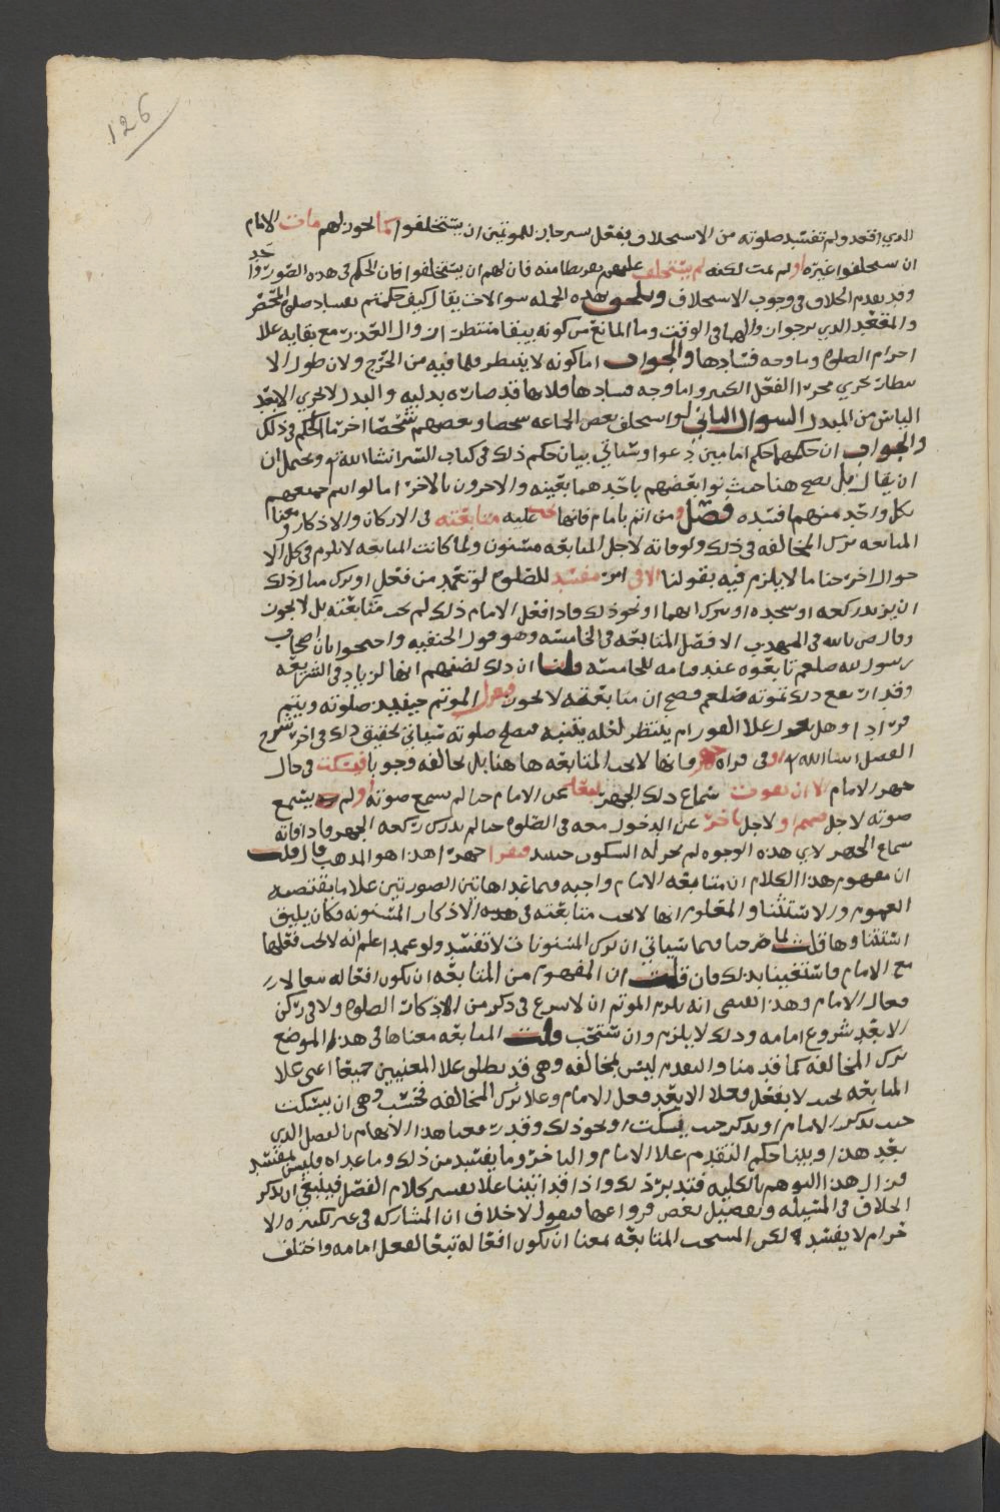 126
الذي اقعد ولم تفسد صلوته من الاستخلاف بفعل يسير جاز للموتمين ان يستخلفوا كما يجوز لهم مات الامام
ان يستخلفوا غيره او لم يمت لكنه لم يستخلف عليهم تفريطا منه فان لهم ان يستخلفوا فان الحكم في هذه الصور واحد
وقد تقدم الخلاف في وجوب الاستخلاف ويلحق بهذه الجمله سوالات يقال كيف حكمتم بفساد صلوة المحصر
والمقعد الذي يرجو ان زوالهما في الوقت وما المانع من كونه يبقا منتظرا زوال العذر مع بقايه علا
احرام الصلوة وما وجه فسادها والجواب اما كونه لا ينتظر فلما فيه من الحرج ولان طول الا
نتظار يجري مجرا الفعل الكثير واما وجه فسادها فلانها قد صارت بدليه والبدل لا يجزي الا بعد
الياس من المبدل السوال الثاني لو استخلف بعض الجماعه شخصا وبعضهم شخصا اخر ما الحكم في ذلك
والجواب ان حكمهما حكم امامين دعوا وسياتي بيان حكم ذلك في كتاب السير انشا الله تعالى ويحتمل ان
ان يقال بل يصح هنا حيث نوا بعضهم باحدهما بعينه والاخرون بالاخر اما لو ائتم جميعهم
بكل واحد منهما فسدت فصل ومن ائتم بامام فانها تجب عليه متابعته في الاركان والاذكار ومعنا
المتابعه ترك المخالفه في ذلك ولو فاته لاجل المتابعه مسنون ولما كانت المتابعه لا تلزم في كل الا
حوال اخرجنا ما لا يلزم فيه بقولنا الا في امر مفسد للصلوة لو تعمد من فعل او ترك مثال ذلك
ان يزيد ركعه او سجده او يترك ايهما او نحو ذلك فاذا فعل الامام ذلك لم تجب متابعته بل لا تجوز
وقال ض بالله في المهذب الافضل المتابعه في الخامسه وهو قول الحنفيه واحتجوا بان اصحاب
رسول الله صلعم تابعوه عند قيامه للخامسه قلنا ان ذلك لظنهم انها لزياده في الشريعه
وقد ارتفع ذلك بموته صلعم فصح ان متابعته لا تجوز فيعزل الموتم حينئذ صلوته ويتم
فرادا وهل يعزل علا الفور ام ينتظر لعله يتنبه فتصح صلوته سياتي تحقيق ذلك في اخر شرح
الفصل انشا الله تعالى او في قراة جهر فانها لا تجب المتابعه ها هنا بل يخالفه وجوبا فيسكت في حال
جهر الامام الا ان يفوت سماع ذلك الجهر لبعد عن الامام حتا لم يسمع صوته او لم يسمع
صوته لاجل صمم او لاجل تاخر عن الدخول معه في الصلوة حتا لم يدرك ركعه الجهر فاذا فاته
سماع الجهر لاي هذه الوجوه لم يجز له السكوت حينئذ فيقرا جهرا هذا هو المذهب فان قلت
ان مفهوم هذا الكلام ان متابعه الامام واجبه فيما عدا هاتين الصورتين علا ما يقتضيه
العموم والاستثنا والمعلوم انها لا تجب متابعته في هذه الاذكار المسنونه فكان يليق
استثناوها قلت لما صرحنا فيما سياتي ان ترك المسنونات لا تفسد ولو عمدا علم انه لا تجب فعلها
مع الامام فاستغنينا بذلك فان قلت ان المفهوم من المتابعه ان تكون افعاله تبعا لا
فعال الامام وهذا يقتضي انه يلزم الموتم ان لا يشرع في ذكر من الاذكار الصلوة ولا في ركن
الا بعد شروع امامه وذلك لا يلزم وان استحب قلت المتابعه معناها في هذا الموضع
ترك المخالفه كما قدمنا والتقدم ليس بمخالفه وهي قد تطلق علا المعنيين جميعا اعني علا
المتابعه بحيث لا يفعل فعلا الا بعد فعل الامام وعلا ترك المخالفه فحسب وهي ان يسكت
حيث يذكر الامام او يذكر حيث يسكت او نحو ذلك وقد رفعنا هذا الايهام بالفصل الذي
بعد هذا وبينا حكم التقدم علا الامام والتاخر وما يفسد من ذلك وما عداه وليس بمفسد
فزال هذا التوهم بالكليه فتدبر ذلك واذا قد اتينا علا تفسير كلام الفصل فينبغي ان نذكر
الخلاف في المسيله وتفصيل بعض فروعها فنقول لا خلاف ان المشاركه في غير تكبيره الا
حرام لا يفسد لكن المستحب المتابعه بمعنا ان تكون افعاله تبعا لفعل امامه واختلف